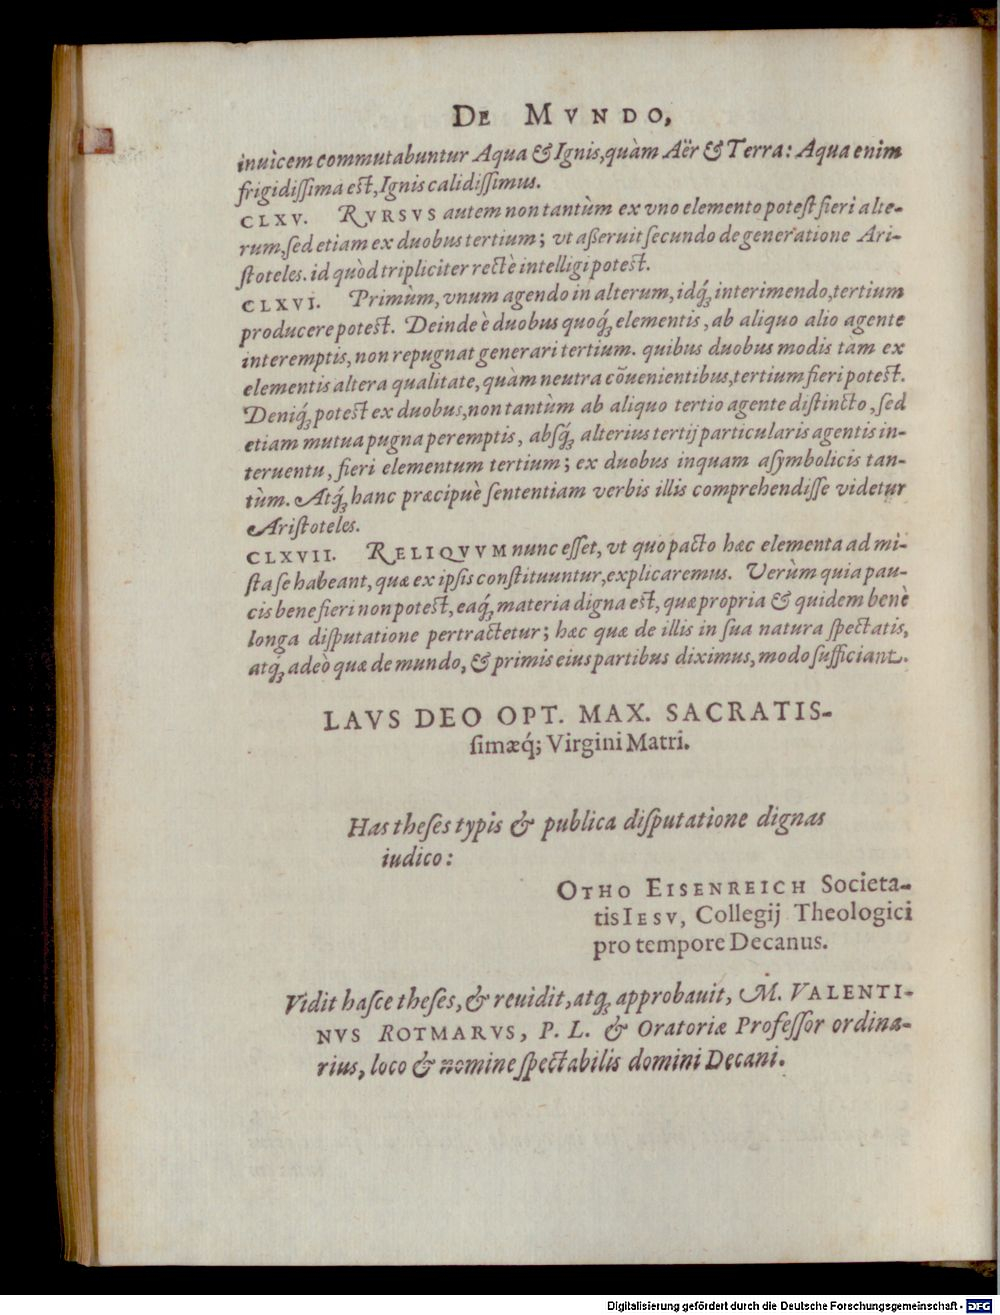 DE MVNDO,
inuicem commutabuntur Aqua & Ignis, quàm Aër & Terra: Aqua enim
frigidiſſima eſt, Ignis calidiſſimus.
CLXV. RVRSVS autem non tantùm ex vno elemento poteſt fieri alte-
rum, ſed etiam ex duobus tertium; vt aßeruit ſecundo de generatione Ari-
ſtoteles. id quòd tripliciter rectè intelligi poteſt.
CLXVI. Primùm, vnum agendo in alterum, idq́ꝫ interimendo, tertium
producere poteſt. Deinde è duobus quoq́ꝫ elementis, ab aliquo alio agente
interemptis, non repugnat generari tertium. quibus duobus modis tàm ex
elementis altera qualitate, quàm neutra cõuenientibus, tertium fieri poteſt.
Deniq́ꝫ poteſt ex duobus, non tantùm ab aliquo tertio agente diſtincto, ſed
etiam mutua pugna peremptis, abſq́ꝫ alterius tertij particularis agentis in-
teruentu, fieri elementum tertium; ex duobus inquam aſymbolicis tan-
tùm. Atq́ꝫ hanc præcipuè ſententiam verbis illis comprehendiſſe videtur
Ariſtoteles.
CLXVII. RELIQVVM nunc eſſet, vt quo pacto hæc elementa ad mi-
ſta ſe habeant, quæ ex ipſis conſtituuntur, explicaremus. Verùm quia pau-
cis bene fieri non poteſt, eaq́ꝫ materia digna eſt, quæ propria & quidem benè
longa diſputatione pertractetur; hæc quæ de illis in ſua natura ſpectatis,
atq́ꝫ adeò quæ de mundo, & primis eius partibus diximus, modo ſufficiant.
LAVS DEO OPT. MAX. SACRATIS-
ſimæq́; Virgini Matri.
Has theſes typis & publica diſputatione dignas
iudico:
OTHO EISENREICH Societa-
tis IESV, Collegij Theologici
pro tempore Decanus.
Vidit haſce theſes, & reuidit, atqꝫ approbauit, M. VALENTI-
NVS ROTMARVS, P. L. & Oratoriæ Profeſſor ordina-
rius, loco & nomine ſpectabilis domini Decani.
Digitalisierung gefördert durch die Deutsche Forschungsgemeinschaft - DFG